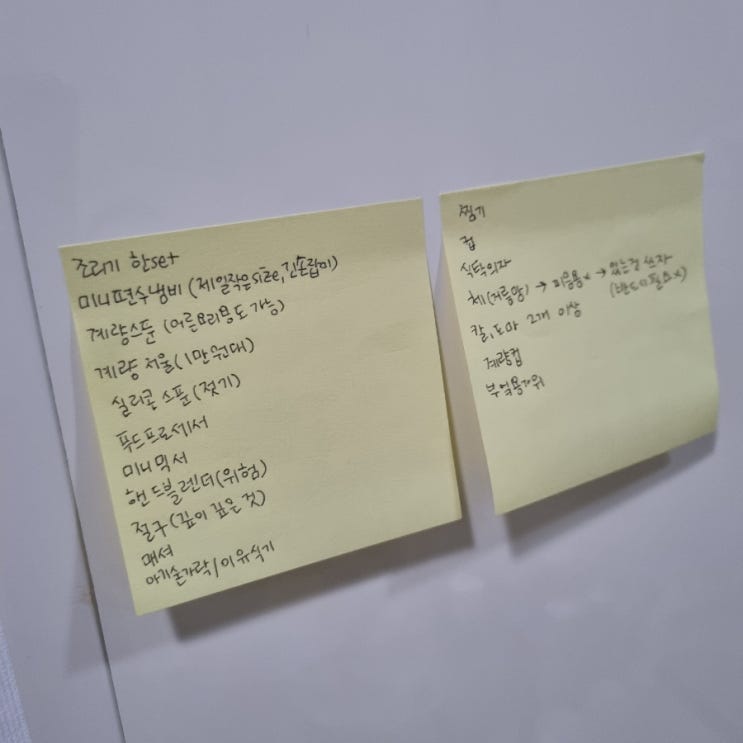 조리기 한set
미니편수냄비 (제일작은size, 긴손잡이)
계량스푼 (어른요리용도 가능)
계량 저울 (1만원대)
실리콘 스푼 (젓기)
푸드프로세서
미니믹서
핸드블렌더 (위험)
절구 (깊이 깊은 것)
매셔
아기숟가락/이유식기
찜기
컵
식탁의자
체(거름망) → 미음용x → 있는걸 쓰자
(반드시필요x)
칼, 도마 2개 이상
계량컵
부엌용가위